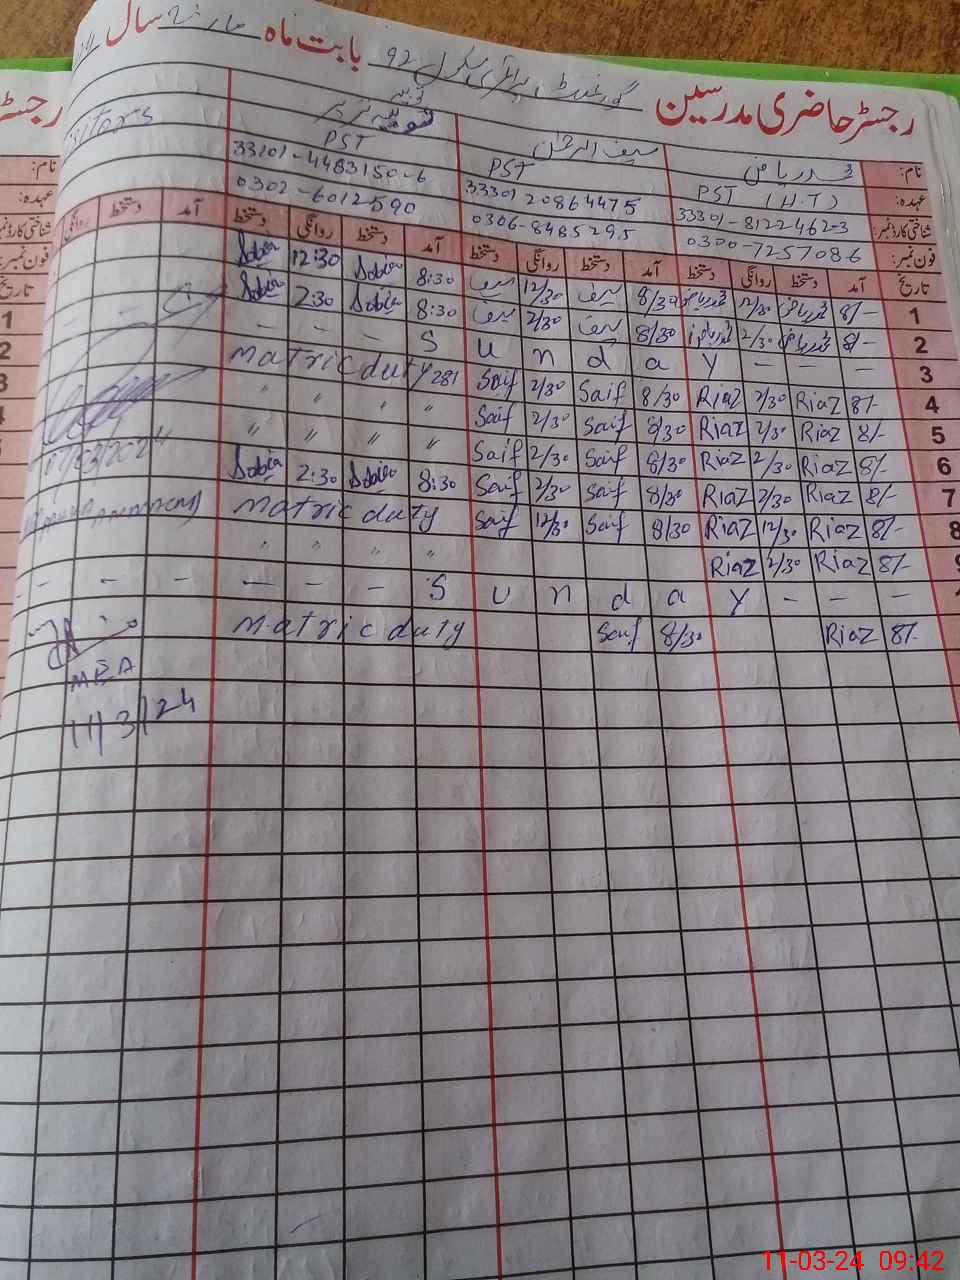 رجسٹر حاضری مدرسین گورنمنٹ پرائمری سکول 92 بابت ماہ مارچ سال
نام: محمد ریاض سیف الرحمٰن
عہدہ: PST (H.T) PST PST
شناختی کارڈ نمبر: 33301-8122462-3 33301 20864475 33101-4483150-6
فون نمبر: 0300-7257086 0306-8485295 0302-6012590
تاریخ آمد دستخط روانگی دستخط آمد دستخط روانگی دستخط آمد دستخط روانگی دستخط آمد دستخط روانگی
1 8/- محمد ریاض 12/30 محمد ریاض 8/30 سیف 12/30 سیف 8:30 Sobia 12:30 Sobia
2 8/- محمد ریاض 2/30 محمد ریاض 8/30 سیف 2/30 سیف 8:30 Sobia 2:30 Sobia
3 - - - S u n d a y - - - - -
4 8/- Riaz 2/30 Riaz 8/30 Saif 2/30 Saif Matric duty 281
5 8/- Riaz 2/30 Riaz 8/30 Saif 2/30 Saif " " " "
6 8/- Riaz 2/30 Riaz 8/30 Saif 2/30 Saif " " " "
7 8/- Riaz 2/30 Riaz 8/30 Saif 2/30 Saif 8:30 Sobia 2:30 Sobia
8 8/- Riaz 12/30 Riaz 8/30 Saif 12/30 Saif Matric duty
8/- Riaz 2/30 Riaz " " " "
- - - S u n d a y - - - - - -
8/- Riaz 8/30 Saif Matric duty
MEA
11/3/24
11-03-24 09:42